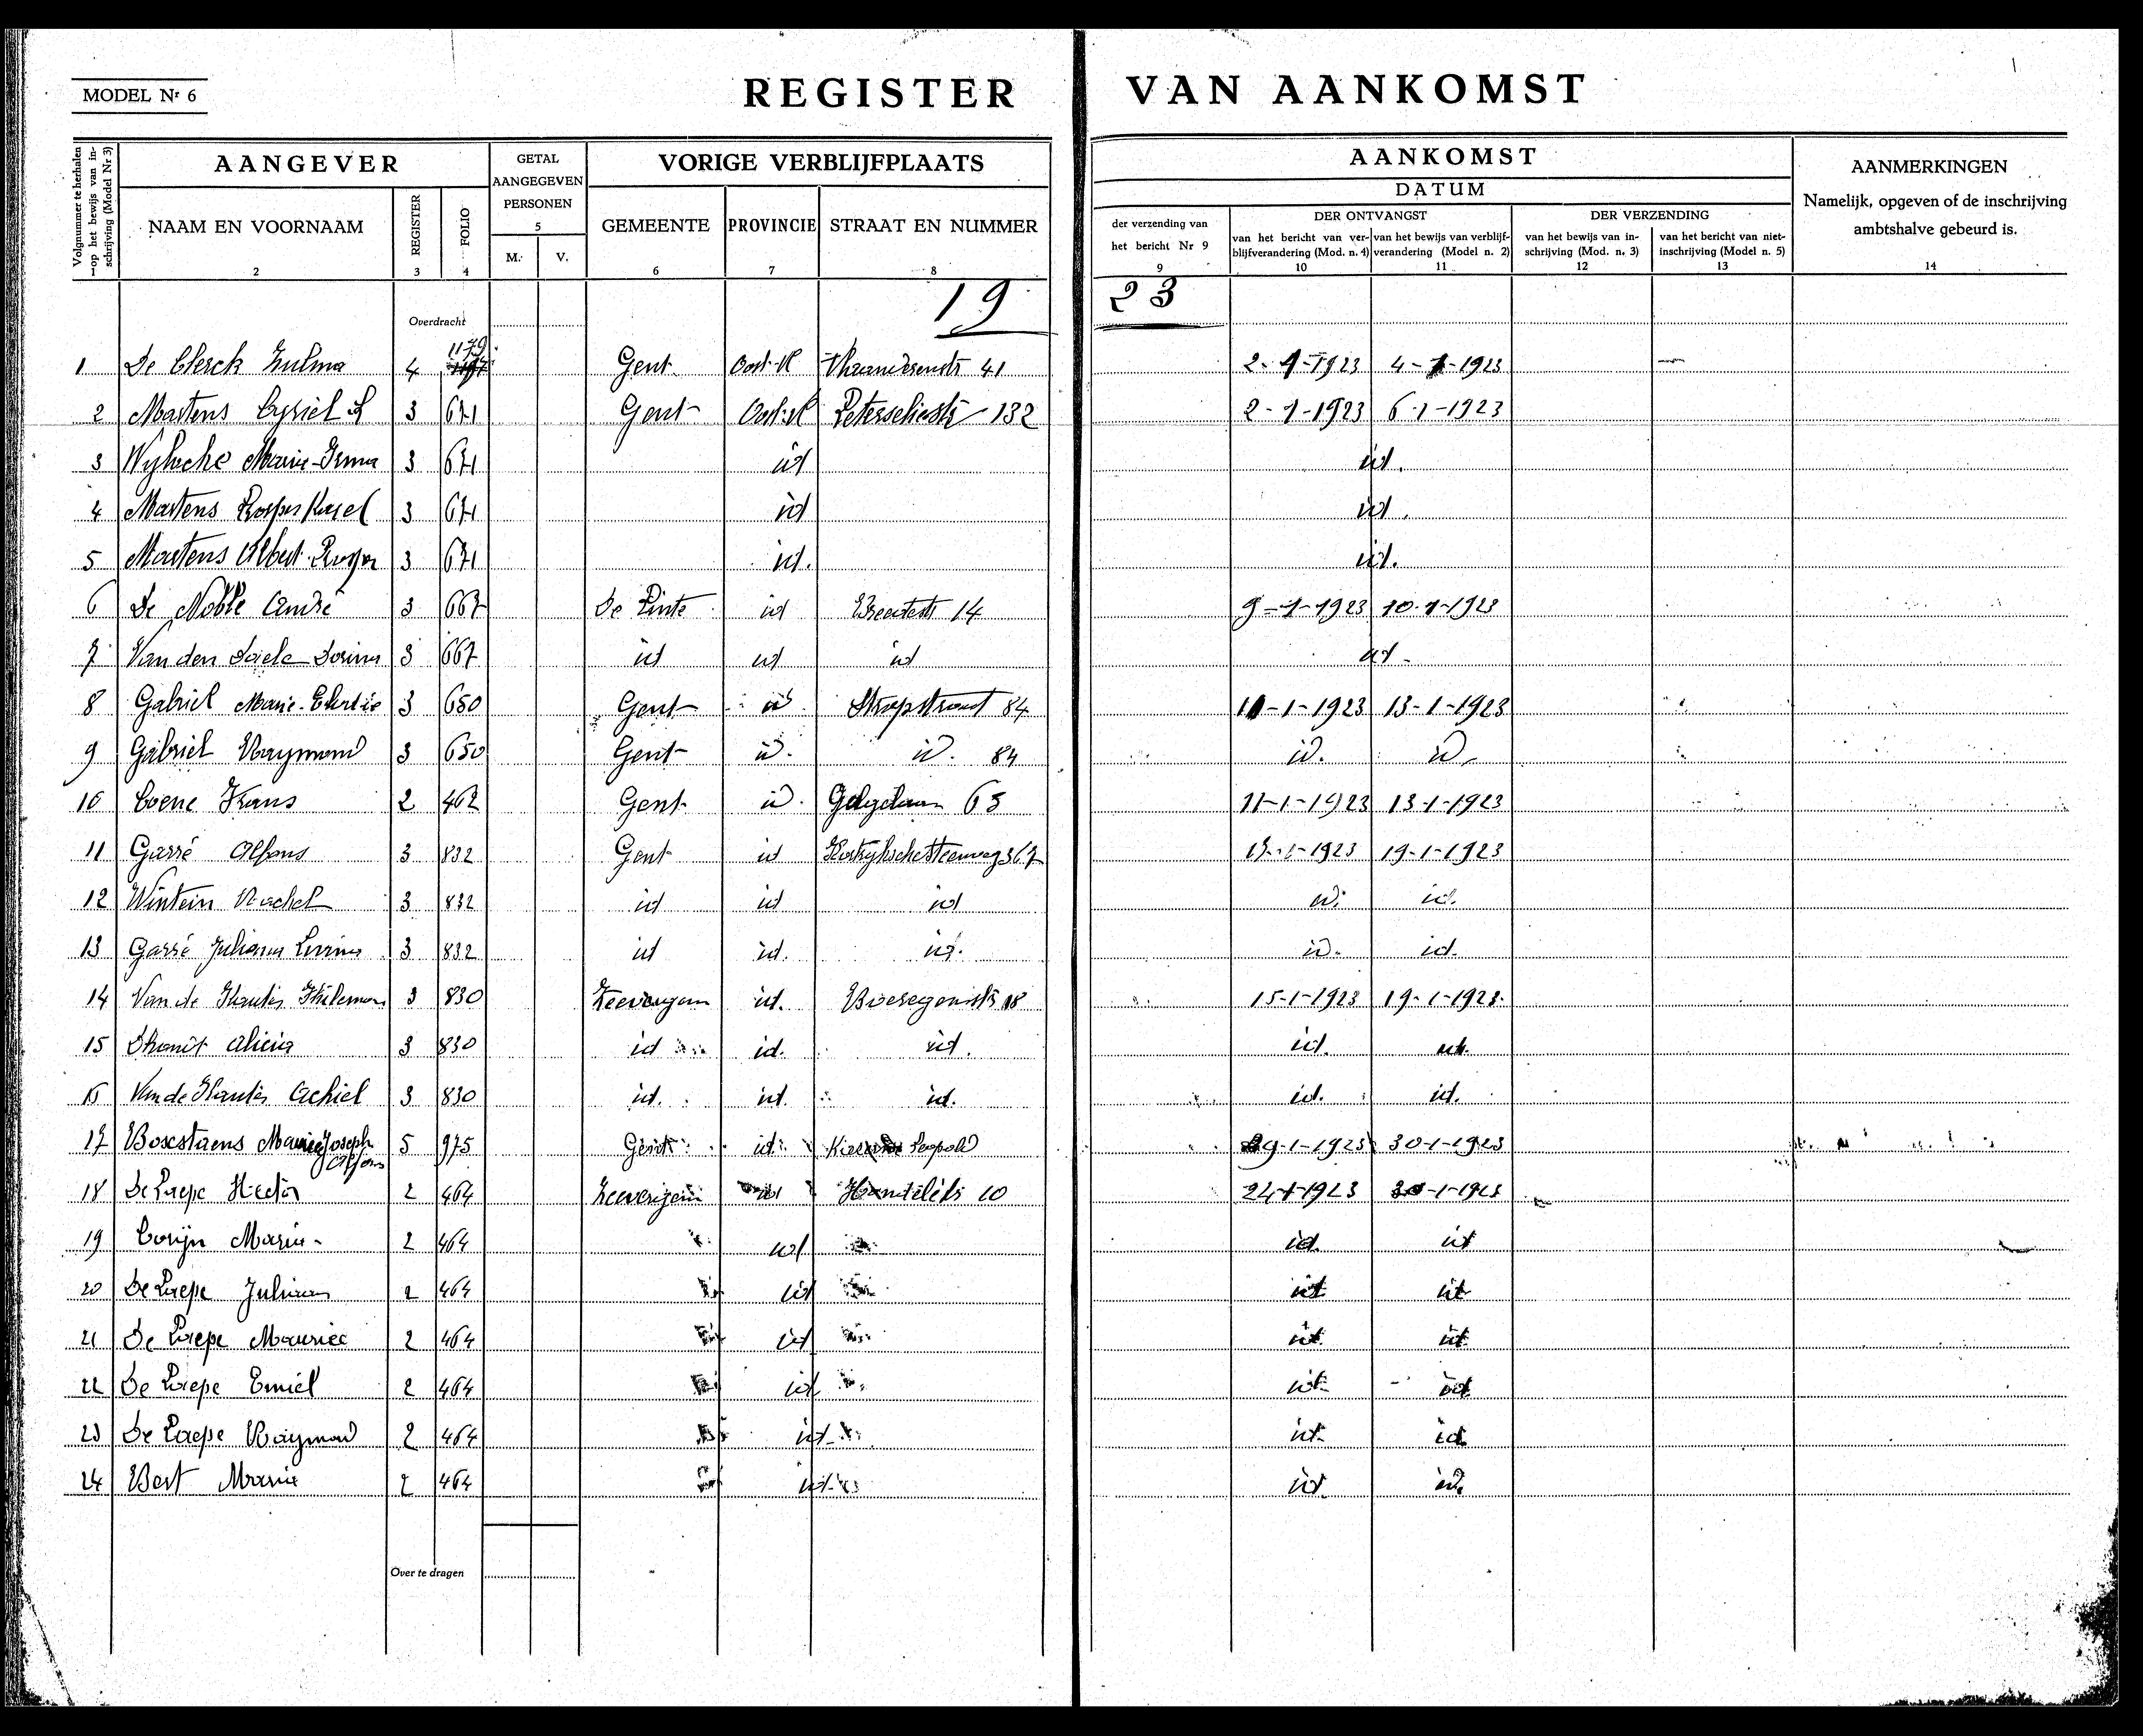 MODEL Nr 6
REGISTER VAN AANKOMST
Volgnummer te herhalen op het bewijs van inschrijving (Model Nr 3)
AANGEVER
GETAL AANGEGEVEN PERSONEN
VORIGE VERBLIJFPLAATS
AANKOMST
AANMERKINGEN
Namelijk, opgeven of de inschrijving ambtshalve gebeurd is.
DATUM
NAAM EN VOORNAAM REGISTER FOLIO
5
M. V.
GEMEENTE PROVINCIE STRAAT EN NUMMER
der verzending van het bericht Nr 9
DER ONTVANGST
DER VERZENDING
van het bericht van verblijfverandering (Mod. n. 4)
van het bewijs van verblijfverandering (Model n. 2)
van het bewijs van inschrijving (Mod. n. 3)
van het bericht van niet-inschrijving (Model n. 5)
1 2 3 4 6 7 8 9 10 11 12 13 14
Overdracht 19 23
1 De Clerck Zulma 4 1179 Gent Oost-Vl 41 2-1-1923 4-1-1923
2 Martens Cyriel 3 671 Gent Oost-Vl 132 2-1-1923 6-1-1923
3 Marie-Irma 3 671 id id.
4 Martens 3 671 id id.
5 Martens Albert 3 671 id. id.
6 De Noble André 3 667 De Pinte id 14 9-1-1923 10-1-1923
7 Van den 3 667 id id id id
8 Gabriel Marie 3 650 Gent id Stropstraat 84 11-1-1923 13-1-1923
9 Gabriel Raymond 3 650 Gent id. id. 84 id. id.
10 Coene Frans 2 462 Gent id. 63 11-1-1923 13-1-1923
11 Garré Alfons 3 832 Gent id Kortrijkschesteenweg 367 1923 19-1-1923
12 Wintein Rachel 3 832 id id id id. id.
13 Garré 3 832 id id. id. id. id.
14 Van de 3 830 Zeevergem id. 18 15-1-1923 19-1-1923
15 Alicia 3 830 id id. id. id. id.
16 Van de Achiel 3 830 id. id. id. id. id.
17 Joseph Alfons 5 975 Gent id. Leopold 29-1-1923 30-1-1923
18 De Paepe Hector 2 464 Zeevergem id 10 24-1-1923 30-1-1923
19 Corijn Maria 2 464 id id. id
20 De Paepe 2 464 id id id
21 De Paepe Maurice 2 464 id id id
22 De Paepe Emiel 2 464 id id id
23 De Paepe Raymond 2 464 id id id
24 Bert Maria 2 464 id id id.
Over te dragen